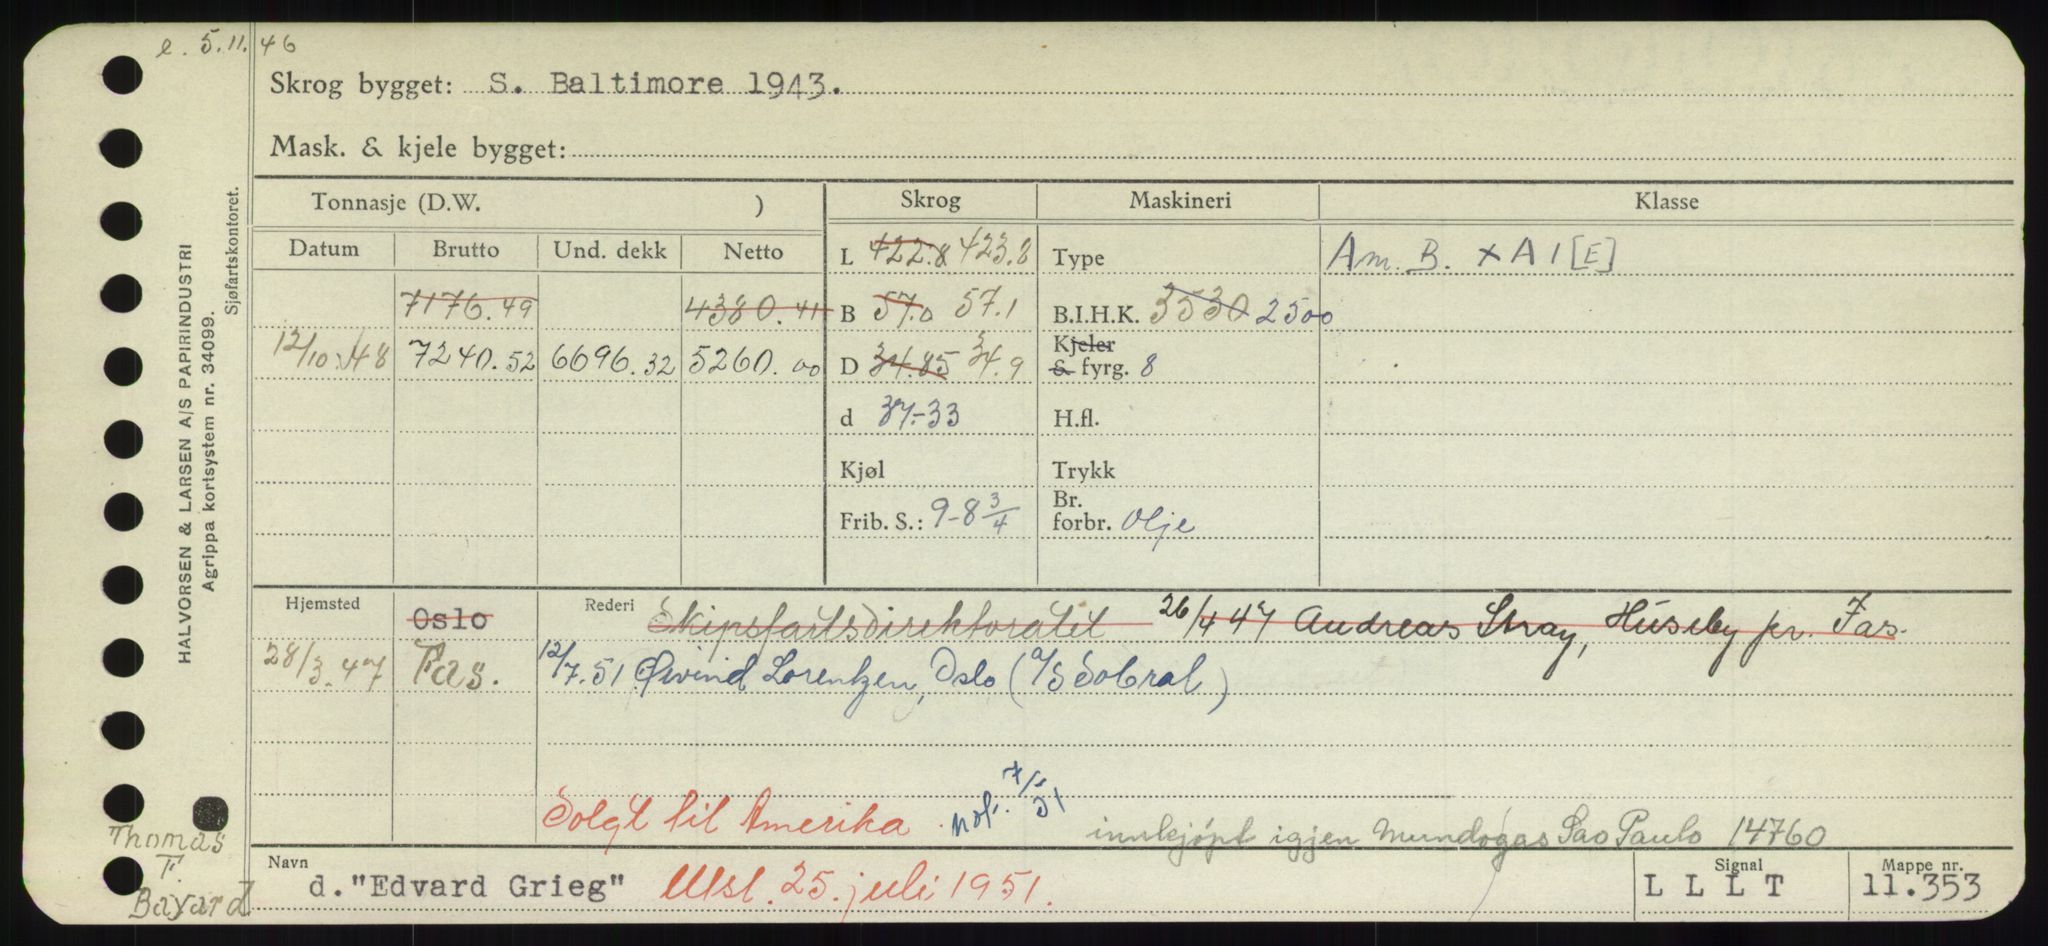 e. 5.11.46
Skrog bygget: S. Baltimore 1943.
Mask. & kjele bygget:
HALVORSEN & LARSEN A/S PAPIRINDUSTRI
Agrippa kortsystem nr. 34099.
Sjøfartskontoret.
Tonnasje (D.W. ) Skrog Maskineri Klasse
Datum Brutto Und. dekk Netto L 422.8 423.8 Type Am. B. + A 1 [E]
7176.49 4380.41 B 57.0 57.1 B.I.H.K. 3530 2500
12/10.48 7240.52 6696.32 5260.00 D 34.85 34.9 Kjeler
S. fyrg. 8
d 37-33 H.fl.
Kjøl Trykk
Frib. S.: 9-8 3/4 Br.
forbr. Olje
Hjemsted Oslo Rederi Skipsfartsdirektoratet 26/4 47 Andreas Stray, Huseby pr. Fas.
28/3.47 Fas. 12/7.51 Øivind Lorentzen, Oslo (A/S Sobral)
Solgt til Amerika. not. 7/51
innkjøpt igjen Mundogas Sao Paulo 14760
Thomas
F.
Bayard
Navn d. "Edvard Grieg" Utsl. 25. juli 1951.
Signal L L L T
Mappe nr. 11.353